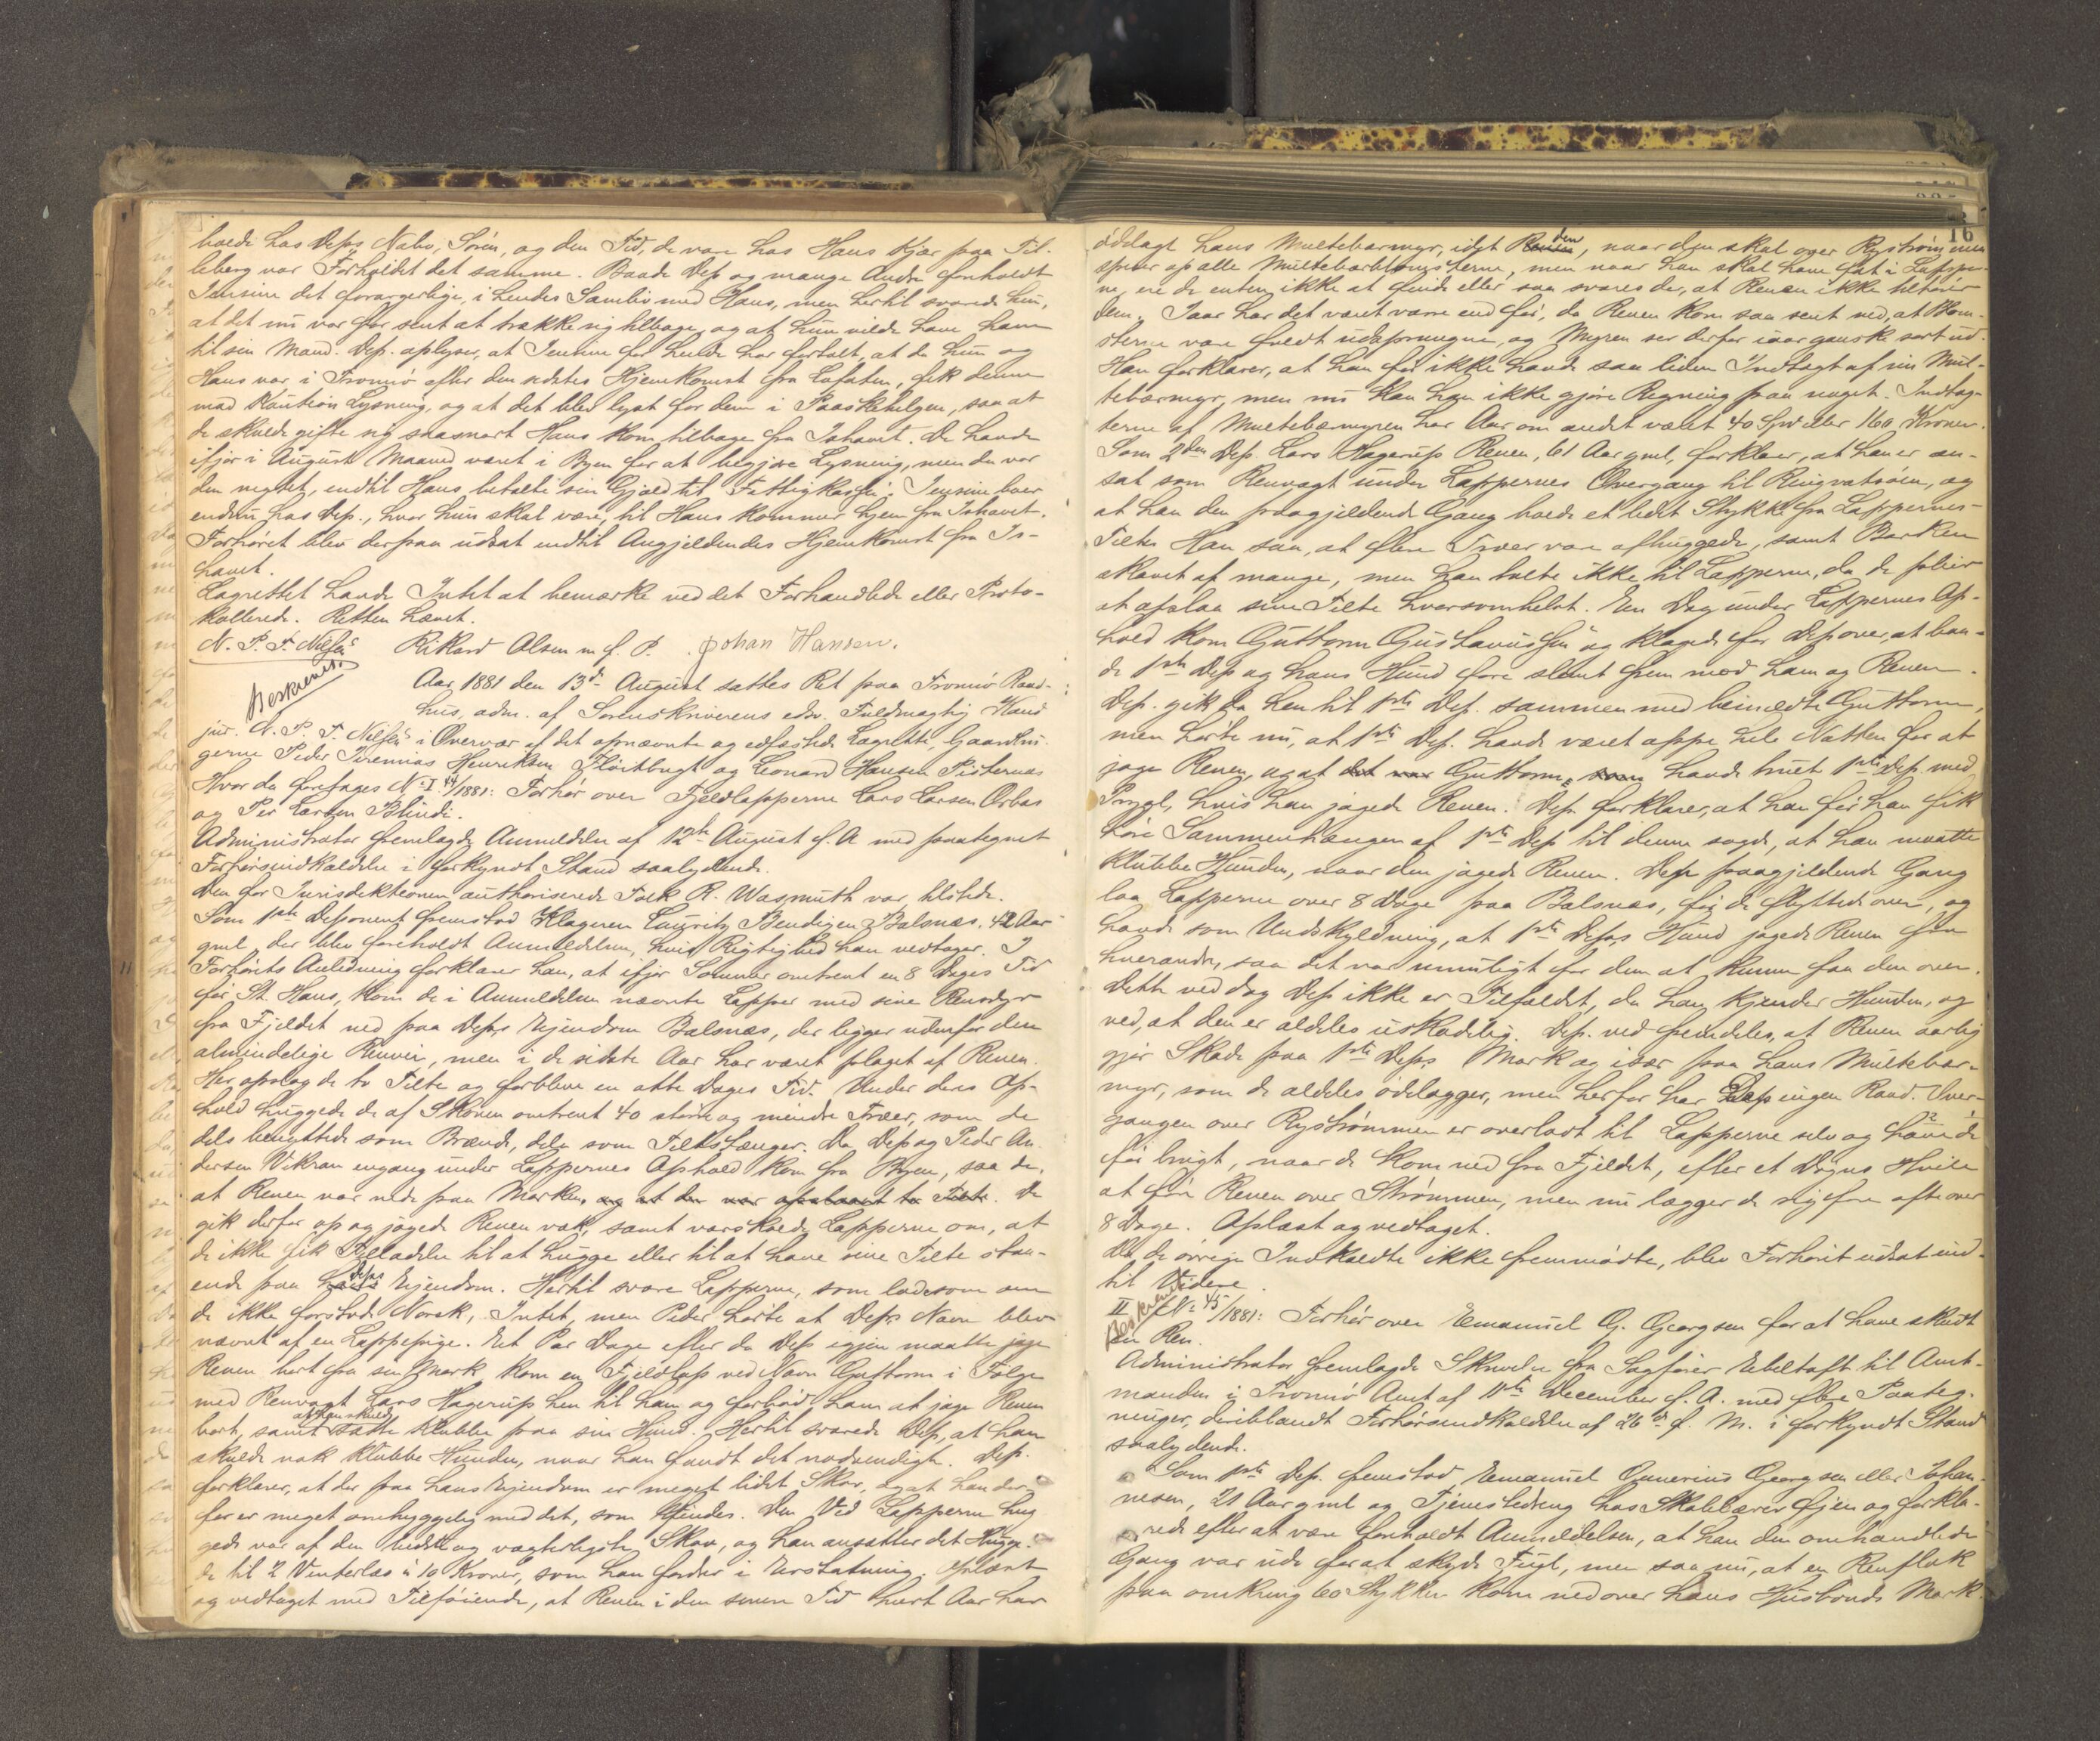 boede hos Deps Nabo, Sørén, og den Tid, de vare hos Hans Kjær paa Til-
leberg var Forholdet det samme. Baade Dep. og mange Andre foreholdt
Jensine det forargerlige i hendes Samliv med Hans, men hertil svarede hun,
at det nu var for sent at trække sig tilbage, og at hun vilde have ham
til sin Mand. Dep. oplyser, at Jensine før hende har fortalt, at da hun og
Hans var i Tromsø efter den sidstes Hjemkomst fra Lofoten, fik denne
mod Kaution Lysning, og at det blev lyst for dem i Paaskehelgen, saa at
de skulde gifte sig saasnart Hans kom tilbage fra Ishavet. De havde
ifjor i August Maaned været i Byen for at begjære Lysning, men da var
den negtet, indtil Hans betalte sin Gjæld til Fattigkassen. Jensine boer
endnu hos Dep., hvor hun skal være, til Hans kommer hjem fra Ishavet.
Forhøret blev derpaa udsat indtil Angjældendes Hjemkomst fra Is-
havet.
Lagrettet havde Intet at bemærke ved det Forhandlede eller Proto-
kollerede. Retten hævet.
N. P. F. Nilsen Rikard Olsen m. f. P. Johan Hansen.
Beskrevet.
Aar 1881 den 13de August sattes Ret paa Tromsø Raad-
hus, adm. af Sorenskriverens edsv. Fuldmægtig Kand
jur. N. P. F. Nilsen i Overvær af det opnævnte og edfæstede Lagrette, Gaardbru-
gerne Peder Jeremias Henriksen Fløitbugt og Leonard Hansen Pisternes
Hvor da foretages No I 44/1881: Forhør over Fjeldlapperne Lars Larsen Orbas
og Per Larsen Blinde.
Administrator fremlagde Anmeldelse af 12te August d. A med paategnet
Forhørsindkaldelse i forkyndt Stand saalydende.
Den for Jurisdiktionen authoriserede Tolk R. Wasmuth var tilstede.
Som 1ste Deponent fremstod Klageren Lauritz Bendigsen Balsnes, 42 Aar
gml, der blev foreholdt Anmeldelsen, hvis Rigtighed han vedtager. I
Forhørets Anledning forklarer han, at ifjor Sommer omtrent en 8 Dages Tid
før St. Hans, kom de i Anmeldelsen nævnte Lapper med sine Rensdyr
fra Fjeldet ned paa Deps Eiendom Balsnæs, der ligger udenfor den
almindelige Renvei, men i de sidste Aar har været plaget af Renen.
Her opslog de to Telte og forbleve en otte Dages Tid. Under deres Op-
hold huggede de af Skoven omtrent 40 større og mindre Træer, som de
dels benyttede som Brænde, dels som Teltstænger. Da Dep og Peder An-
dersen Vikran engang under Lappernes Ophold kom fra Byen, saa de,
at Renen var nede paa Marken, og at der var opslaaet to Telte. De
gik derfor op og jagede Renen væk, samt varskoede Lapperne om, at
de ikke fik Tilladelse til at hugge eller til at have sine Telte staa-
ende paa hans Deps Eiendom. Hertil svare Lapperne, som lode som om
de ikke forstode Norsk, Intet, men Peder hørte at Deps Navn blev
nævnt af en Lappepige. Et Par Dage efter da Dep igjen maatte jage
Renen bort fra sin Mark kom en Fjeldlap ved Navn Guttorm i Følge
med Renvagt Lars Hagerup hen til ham og forbød ham at jage Renen
bort, samt at han skulde satte Klubbe paa sin Hund. Hertil svarede Dep, at han
skulde nok klubbe Hunden, naar han fandt det nødvendigt. Dep.
forklarer, at der paa hans Eiendom er meget lidet Skov, og at han der-
for er meget omhyggelig med det, som findes. Den Ved Lapperne hug
gede var af den bedste og vægterligste Skov, og han ansætter det Hugge-
de til 2 Vinterlæs à 10 Kroner, som han fordrer i Erstatning. Oplæst
og vedtaget med Tilføiende, at Renen i den senere Tid hvert Aar har
16
ødelagt hans Multebærmyr, idet Renen den, naar den skal over Rystrømmen
spiser op alle Multebærblomsterne, men naar han skal have fat i Lapper-
ne, ere de enten ikke at finde eller saa svares der, at Renen ikke tilhører
dem. Iaar har det været værre end før, da Renen kom saa sent ned, at Blom-
sterne vare fuldt udsprungne, og Myren ser derfor iaar ganske sort ud.
Han forklarer, at han før ikke havde saa liden Indtægt af sin Mul-
tebærmyr, men nu kan han ikke gjøre Regning paa noget. Indtæg-
terne af Multebærmyren har Aar om andet været 40 Spd eller 160 Kroner.
Som 2den Dep. Lars Hagerup Renen, 61 Aar gml, forklarer, at han er an-
sat som Renvagt under Lappernes Overgang til Ringvatsøen, og
at han den paagjeldende Gang boede et lidet Stykke fra Lappernes
Telte. Han saa, at flere Træer vare afhuggede, samt Barken
skavet af mange, men han talte ikke til Lapperne, da de pleier
at opslaa sine Telte hvorsomhelst. En Dag under Lappernes Op-
hold kom Guttorm Gustavussen og klagede for Dep over, at baa-
de 1ste Dep og hans Hund fore slemt frem mod ham og Renen.
Dep. gik da hen til 1ste Dep. sammen med bemeldte Guttorm,
men hørte nu, at 1ste Dep. havde været oppe hele Natten for at
jage Renen, og at det var Guttorm, som havde truet 1ste Dep. med
Prygl, hvis han jagede Renen. Dep. forklarer, at han før han fik
høre Sammenhængen af 1ste Dep til denne sagde, at han maatte
klubbe Hunden, naar den jagede Renen. Dep. paagjeldende Gang
laa Lapperne over 8 Dage paa Balsnæs, før de flyttede over, og
havde som Undskyldning, at 1ste Deps Hund jagede Renen fra
hverandre, saa det var umuligt for dem at kunne faa den over.
Dette ved dog Dep ikke er Tilfældet, da han kjender Hunden, og
ved, at den er aldeles uskadelig. Dep. ved fremdeles, at Renen aarlig
gjør Skade paa 1ste Deps Mark og især paa hans Multebær-
myr, som de aldeles ødelægger, men herfor har Dep ingen Raad. Over-
gangen over Rystrømmen er overladt til Lapperne selv og have de
før brugt, naar de kom ned fra Fjeldet, efter et Døgns Hvile
at føre Renen over Strømmen, men nu lægger de sig for ofte over
8 Dage. Oplæst og vedtaget.
Da de øvrige Indkaldte ikke fremmødte, blev Forhøret udsat ind-
til Videre.
Beskrevet
II No 45/1881: Forhør over Emanuel G. Georgsen for at have skudt
en Ren.
Administrator fremlagde Skrivelse fra Sagfører Ebeltoft til Amt-
manden i Tromsø Amt af 11te December f. A. med flere Paateg-
ninger, deriblandt Forhørsindkaldelse af 26de f. M. i forkyndt Stand
saalydende.
Som 1ste Dep. fremstod Emanuel Gunerius Georgsen eller Johan-
nesen, 21 Aar gml og Tjenestedreng hos Skolelærer Gjen og forkla-
rede efter at være foreholdt Anmeldelsen, at han den omhandlede
Gang var ude for at skyde Fugl, men saa nu, at en Renflok
paa omkring 60 Stykker kom nedover hans Husbonds Mark.